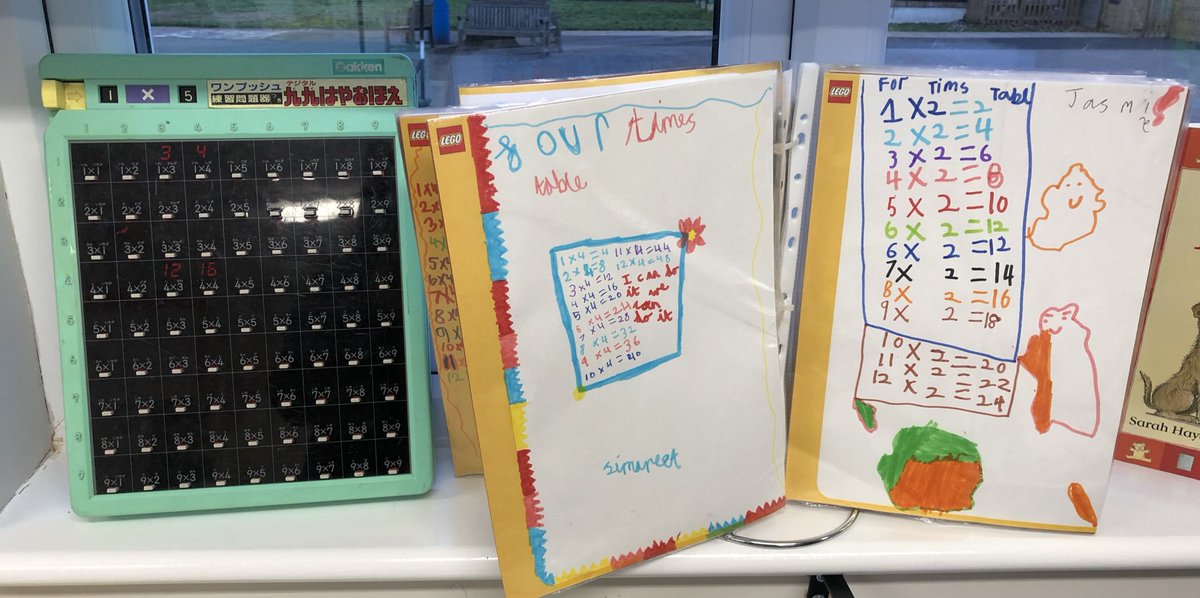 Gakken
1 × 5
ワンプッシュ
練習問題
デジタル
九九はやおぼえ
1 2 3 4 5 6 7 8 9
3 4
1×1 1×2 1×3 1×4 1×5 1×6 1×7 1×8 1×9
2
2×1 2×2 2×3 2×4 2×5 2×6 2×7 2×8 2×9
3
3×1 3×2 3×3 3×4 3×5 3×6 3×7 3×8 3×9
12 16
4
4×1 4×2 4×3 4×4 4×5 4×6 4×7 4×8 4×9
5
5×1 5×2 5×3 5×4 5×5 5×6 5×7 5×8 5×9
6
6×1 6×2 6×3 6×4 6×5 6×6 6×7 6×8 6×9
7
7×1 7×2 7×3 7×4 7×5 7×6 7×7 7×8 7×9
8
8×1 8×2 8×3 8×4 8×5 8×6 8×7 8×8 8×9
9
9×1 9×2 9×3 9×4 9×5 9×6 9×7 9×8 9×9
LEGO
1×4
2×
3×
4×
5×
6×
7×
8×
9×
10
11
12
LEGO
four Times
table
1×4=4 11×4=44
2×4=8 12×4=48
3×4=12 I can do
4×4=16 it we
5×4=20 can
6×4=24 do it
7×4=28
8×4=32
9×4=36
10×4=40
simrpeet
LEGO
For Tims Tabel
Jasmie
1×2=2
2×2=4
3×2=6
4×2=8
5×2=10
6×2=12
6×2=12
7×2=14
8×2=16
9×2=18
10×2=20
11×2=22
12×2=24
Sarah Hay